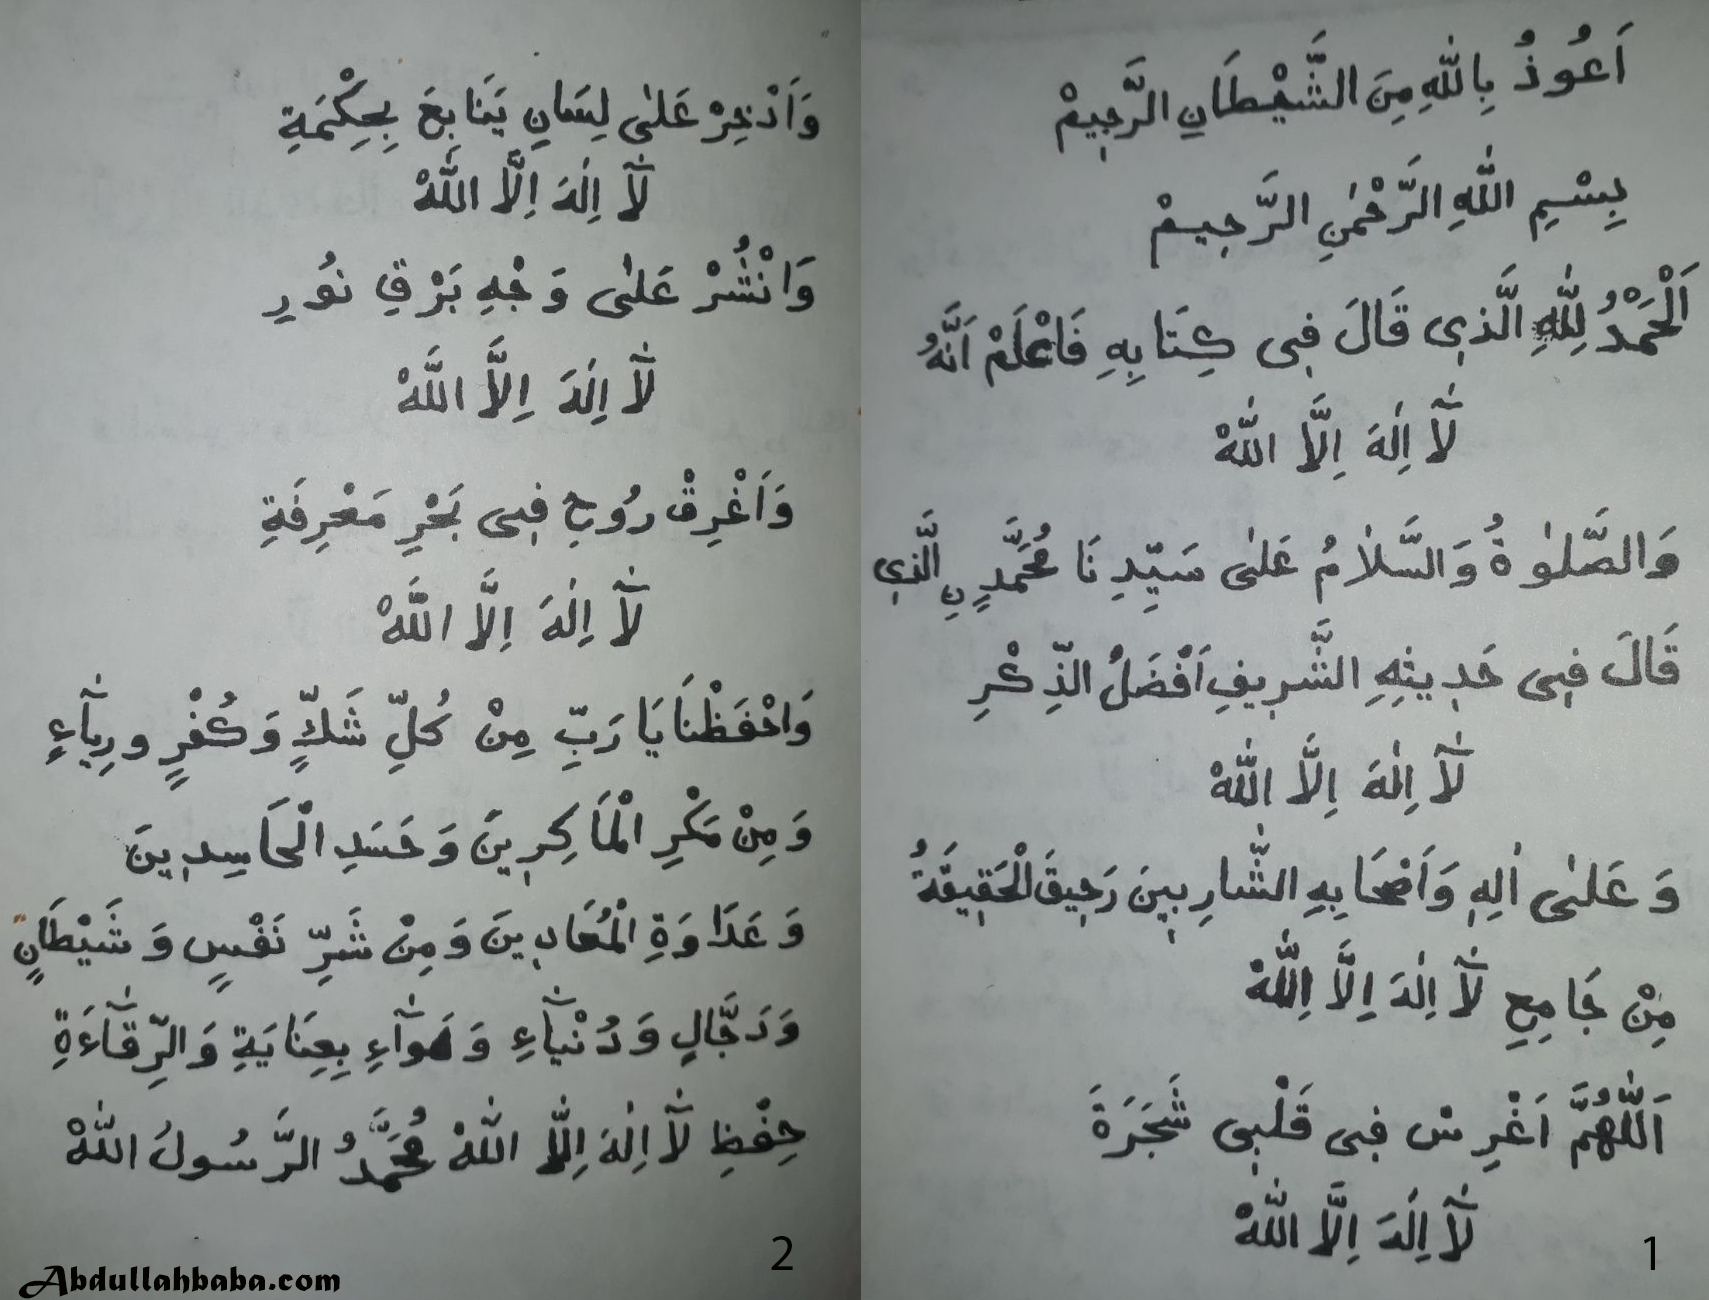 اَعُوذُ بِاللّٰهِ مِنَ الشَّيْطَانِ الرَّجِيمْ
بِسْمِ اللّٰهِ الرَّحْمٰنِ الرَّحِيمْ
اَلْحَمْدُ لِلّٰهِ الَّذِى قَالَ فِى كِتَابِهِ فَاعْلَمْ اَنَّهُ
لَآ اِلٰهَ اِلَّا اللّٰهْ
وَالصَّلٰوةُ وَالسَّلَامُ عَلٰى سَيِّدِنَا مُحَمَّدٍ نِ الَّذِى
قَالَ فِى حَدِيثِهِ الشَّرِيفِ اَفْضَلُ الذِّكْرِ
لَآ اِلٰهَ اِلَّا اللّٰهْ
وَ عَلٰى اٰلِهِ وَاَصْحَابِهِ الشَّارِبِينَ رَحِيقَ الْحَقِيقَةُ
مِنْ جَامِعِ لَآ اِلٰهَ اِلَّا اللّٰهْ
اَللّٰهُمَّ اَغْرِسْ فِى قَلْبِى شَجَرَةَ
لَآ اِلٰهَ اِلَّا اللّٰهْ
1
وَاَدْخِرْ عَلٰى لِسَانِ يَنَابِعَ بِحِكْمَةِ
لَآ اِلٰهَ اِلَّا اللّٰهْ
وَانْشُرْ عَلٰى وَجْهِ بَرْقِ نُورِ
لَآ اِلٰهَ اِلَّا اللّٰهْ
وَاَغْرِقْ رُوحِ فِى بَحْرِ مَعْرِفَةِ
لَآ اِلٰهَ اِلَّا اللّٰهْ
وَاحْفَظْنَا يَا رَبِّ مِنْ كُلِّ شَكٍّ وَ كُفْرٍ و رِيَآءٍ
وَ مِنْ مَكْرِ الْمَاكِرِينَ وَ حَسَدِ الْحَاسِدِينَ
وَ عَدَاوَةِ الْمُعَادِينَ وَ مِنْ شَرِّ نَفْسٍ وَ شَيْطَانٍ
وَ دَجَّالٍ وَ دُنْيَآءِ وَ هَوَآءِ بِعِنَايَةِ وَ الرِّقَآءَةِ
حِفْظِ لَآ اِلٰهَ اِلَّا اللّٰهْ مُحَمَّدُ الرَّسُولُ اللّٰهْ
2
Abdullahbaba.com